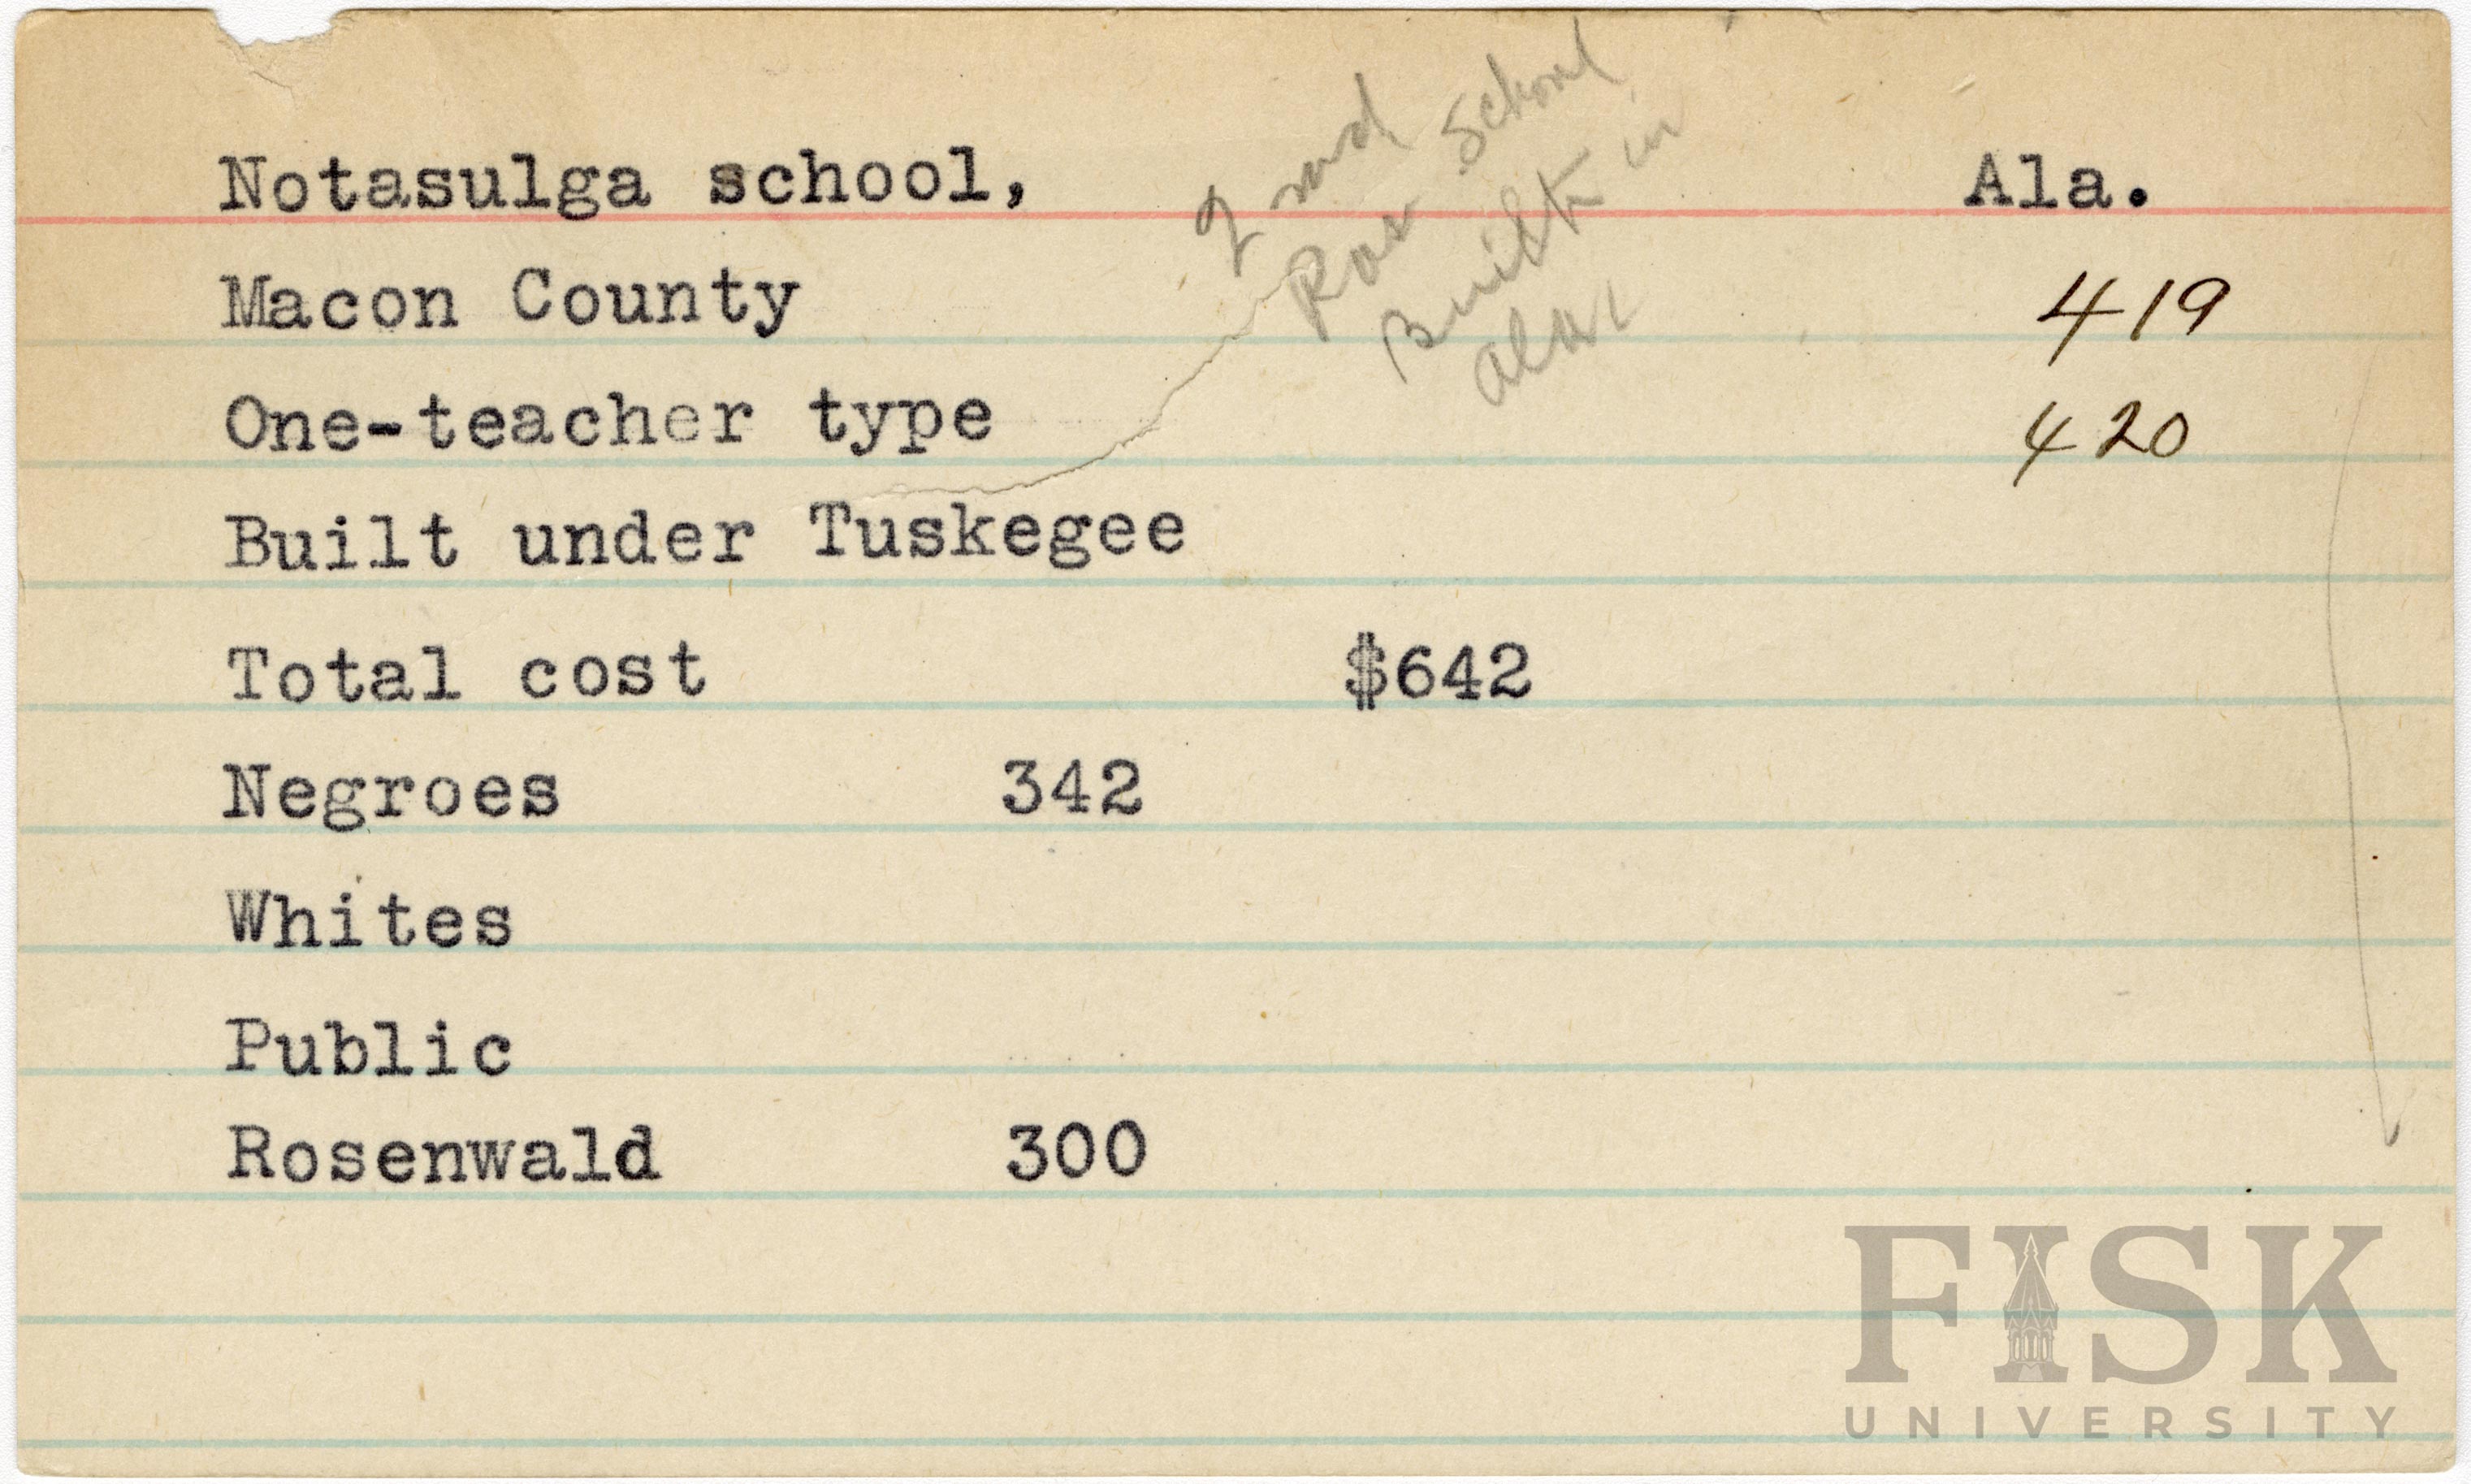 Notasulga school, Ala.
2nd
Ros School
Built in
Ala.
Macon County 419
One-teacher type 420
Built under Tuskegee
Total cost $642
Negroes 342
Whites
Public
Rosenwald 300
FISK
UNIVERSITY